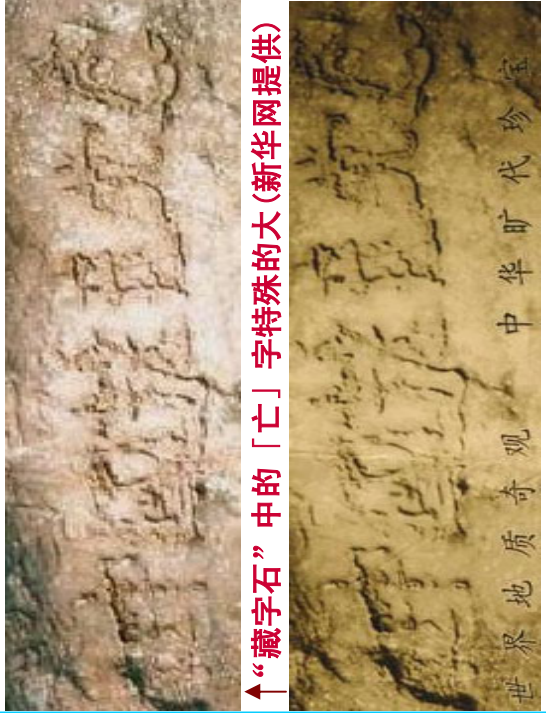 “藏字石”中的「亡」字特殊的大(新华网提供)
世界地质奇观 中华旷代珍宝